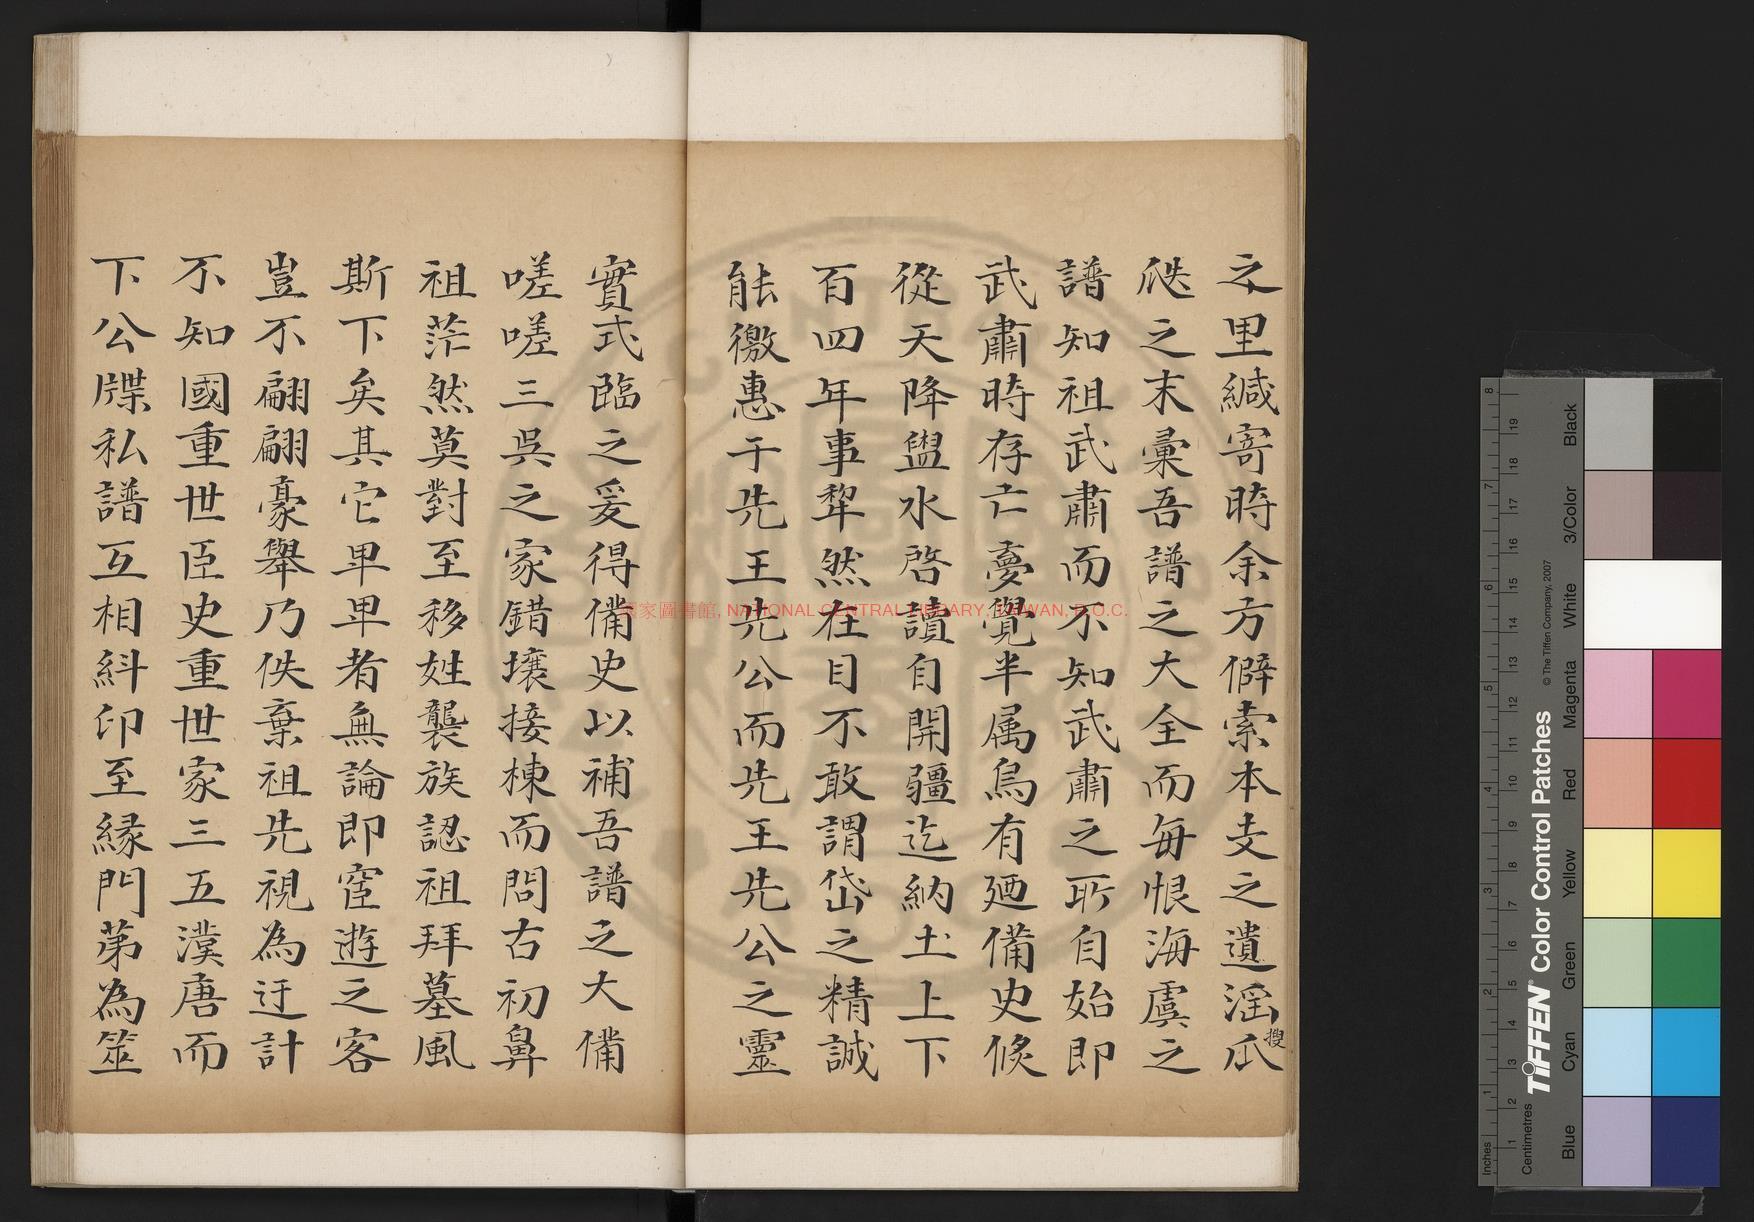 之里緘寄時余方僻索本支之遺滛瓜
搜
瓞之末彙吾譜之大全而每恨海虞之
譜知祖武肅而不知武肅之所自始即
武肅時存亡夢覺半属烏有廼備史倐
從天降盥水啓讀自開疆迄納土上下
百四年事犂然在目不敢謂岱之精誠
能徼惠于先王先公而先王先公之靈
實式臨之爰得備史以補吾譜之大備
嗟嗟三吳之家錯壤接棟而問古初鼻
祖茫然莫對至移姓襲族認祖拜墓風
斯下矣其它卑卑者無論即宦遊之客
豈不翩翩豪舉乃佚棄祖先視為迂計
不知國重世臣史重世家三五漢唐而
下公牒私譜互相糾印至緣門第為筮
國家圖書館, NATIONAL CENTRAL LIBRARY, TAIWAN, R.O.C.
TIFFEN® Color Control Patches
© The Tiffen Company, 2007
Inches
Centimetres
Blue
Cyan
Green
Yellow
Red
Magenta
White
3/Color
Black